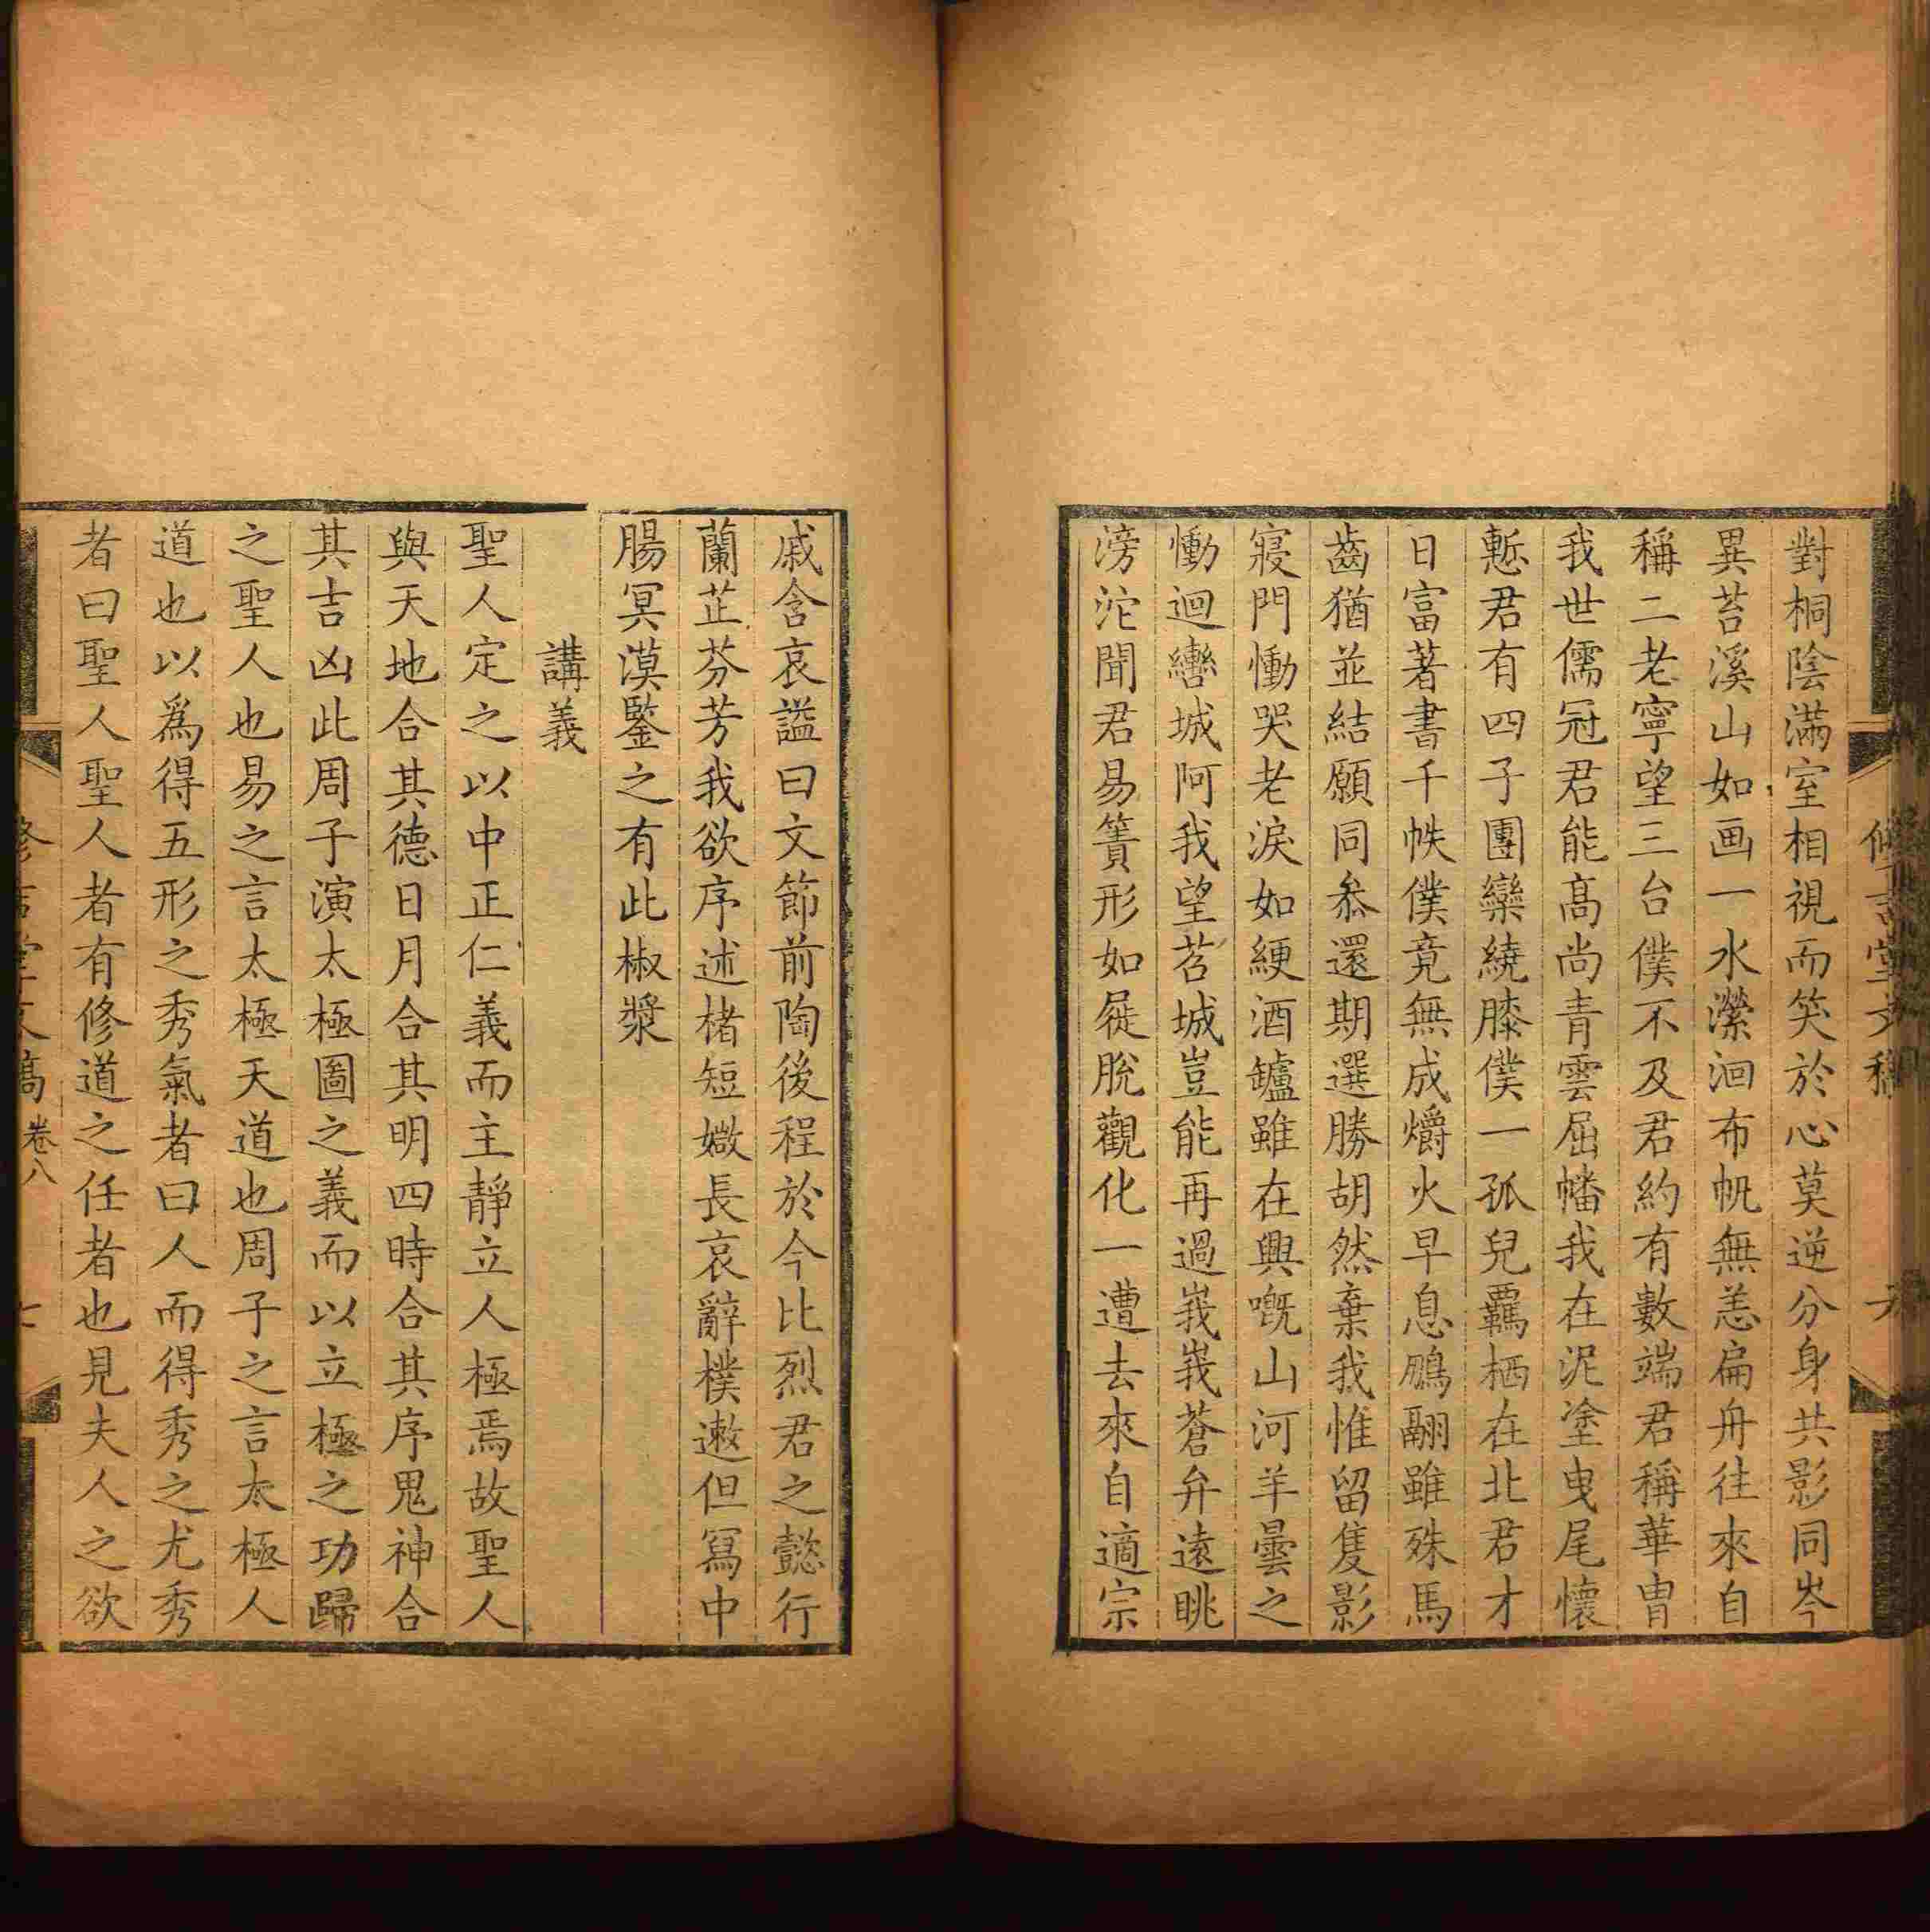 對桐陰滿室相視而笑於心莫逆分身共影同岑
異苔溪山如画一水瀠洄布帆無恙扁舟往來自
稱二老寧望三台僕不及君約有數端君稱華胄
我世儒冠君能高尚青雲屈蟠我在泥塗曳尾懷
慙君有四子團欒繞膝僕一孤兒羈栖在北君才
日富著書千帙僕竟無成爝火早息鵬翮雖殊馬
齒猶並結願同叅還期選勝胡然棄我惟留隻影
寢門慟哭老淚如綆酒罏雖在興嘅山河羊曇之
慟迴轡城阿我望苕城豈能再過峩峩蒼弁遠眺
滂沱聞君易簀形如屣脫觀化一遭去來自適宗
戚含哀謚曰文節前陶後程於今比烈君之懿行
蘭芷芬芳我欲序述楮短媺長哀辭樸遬但冩中
腸冥漠鑒之有此椒漿
講義
聖人定之以中正仁義而主靜立人極焉故聖人
與天地合其德日月合其明四時合其序鬼神合
其吉凶此周子演太極圖之義而以立極之功歸
之聖人也易之言太極天道也周子之言太極人
道也以爲得五形之秀氣者曰人而得秀之尤秀
者曰聖人聖人者有修道之任者也見夫人之欲
修吉堂文稿 卷八 七